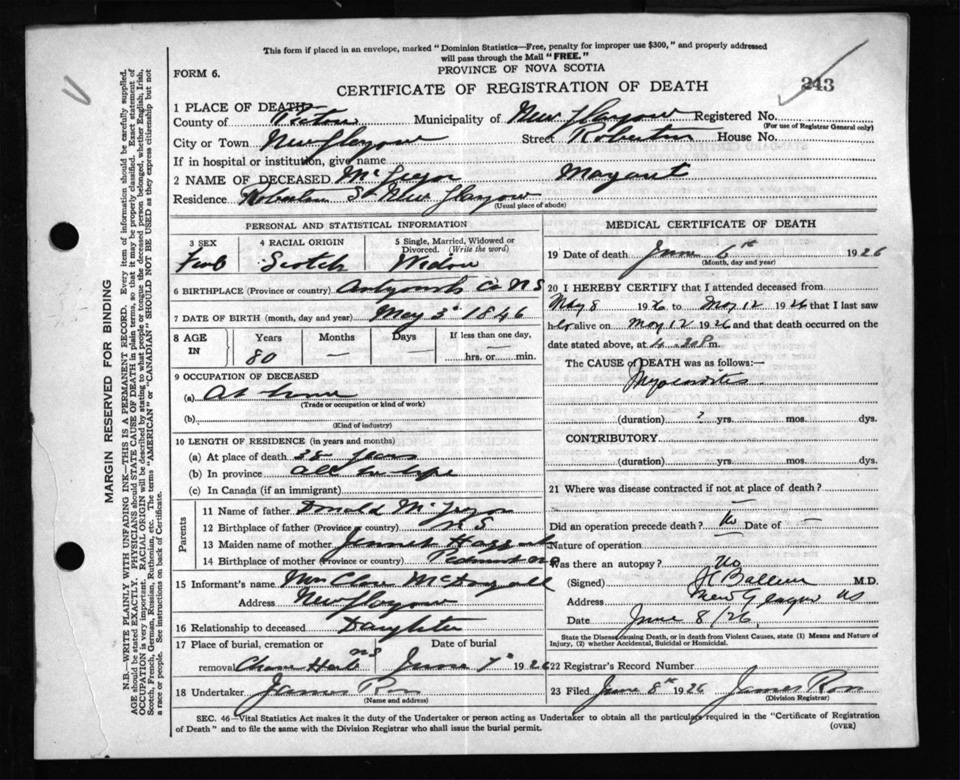 This form if placed in an envelope, marked "Dominion Statistics—Free, penalty for improper use $300," and properly addressed
will pass through the Mail "FREE."
PROVINCE OF NOVA SCOTIA
FORM 6.
CERTIFICATE OF REGISTRATION OF DEATH
243
1 PLACE OF DEATH
County of Pictou Municipality of New Glasgow Registered No.
(For use of Registrar General only)
City or Town New Glasgow Street Robertson House No.
If in hospital or institution, give name
2 NAME OF DECEASED McGregor Margaret
Residence Robertson St New Glasgow
(Usual place of abode)
PERSONAL AND STATISTICAL INFORMATION
3 SEX 4 RACIAL ORIGIN 5 Single, Married, Widowed or Divorced. (Write the word)
Scotch Widow
6 BIRTHPLACE (Province or country) Co N S
7 DATE OF BIRTH (month, day and year) May 3d 1846
8 AGE IN Years Months Days If less than one day,
80 — — hrs. or min.
9 OCCUPATION OF DECEASED
(a) At home
(Trade or occupation or kind of work)
(b)
(Kind of industry)
10 LENGTH OF RESIDENCE (in years and months)
(a) At place of death 38 years
(b) In province all her life
(c) In Canada (if an immigrant)
Parents
11 Name of father Donald McGregor
12 Birthplace of father (Province or country) N S
13 Maiden name of mother Jennet
14 Birthplace of mother (Province or country) Piedmont NS
15 Informant's name Mrs Clare McDougall
Address New Glasgow
16 Relationship to deceased Daughter
17 Place of burial, cremation or Date of burial
removal NS June 7th 1926
18 Undertaker James Ross
(Name and address)
MEDICAL CERTIFICATE OF DEATH
19 Date of death June 6th 1926
(Month, day and year)
20 I HEREBY CERTIFY that I attended deceased from
May 8 1926 to May 12 1926 that I last saw
her alive on May 12 1926 and that death occurred on the
date stated above, at 4.30 P m.
The CAUSE OF DEATH was as follows:—
Myocarditis
(duration) ? yrs. mos. dys.
CONTRIBUTORY
(duration) yrs. mos. dys.
21 Where was disease contracted if not at place of death?
—
Did an operation precede death? No Date of —
Nature of operation —
Was there an autopsy? No
(Signed) M.D.
Address New Glasgow NS
Date June 8/26.
State the Disease causing Death, or in death from Violent Causes, state (1) Means and Nature of
Injury, (2) whether Accidental, Suicidal or Homicidal.
22 Registrar's Record Number
23 Filed June 8th 1926 James Ross
(Division Registrar)
SEC. 46—Vital Statistics Act makes it the duty of the Undertaker or person acting as Undertaker to obtain all the particulars required in the "Certificate of Registration
of Death" and to file the same with the Division Registrar who shall issue the burial permit.
(OVER)
MARGIN RESERVED FOR BINDING
N.B.—WRITE PLAINLY WITH UNFADING INK—THIS IS A PERMANENT RECORD. Every item of information should be carefully supplied.
AGE should be stated EXACTLY. PHYSICIANS should STATE CAUSE OF DEATH in plain terms, so that it may be properly classified. Exact statement of
OCCUPATION is very important. RACIAL ORIGIN will be described by stating to what people or tongue the deceased person belonged, whether English, Irish,
Scotch, French, German, Russian, Ruthenian, etc. The terms "AMERICAN" or "CANADIAN" SHOULD NOT BE USED as they express citizenship but not
a race or people. See instructions on back of Certificate.